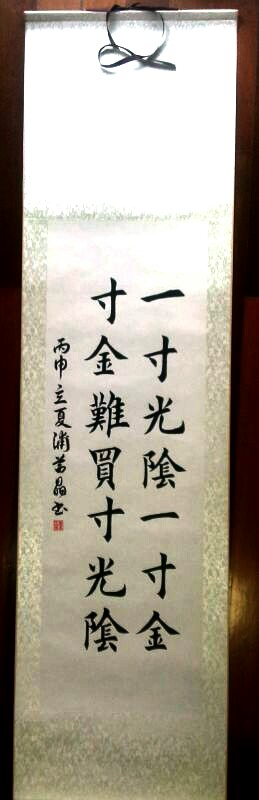 一寸光陰一寸金
寸金難買寸光陰
丙申立夏
書